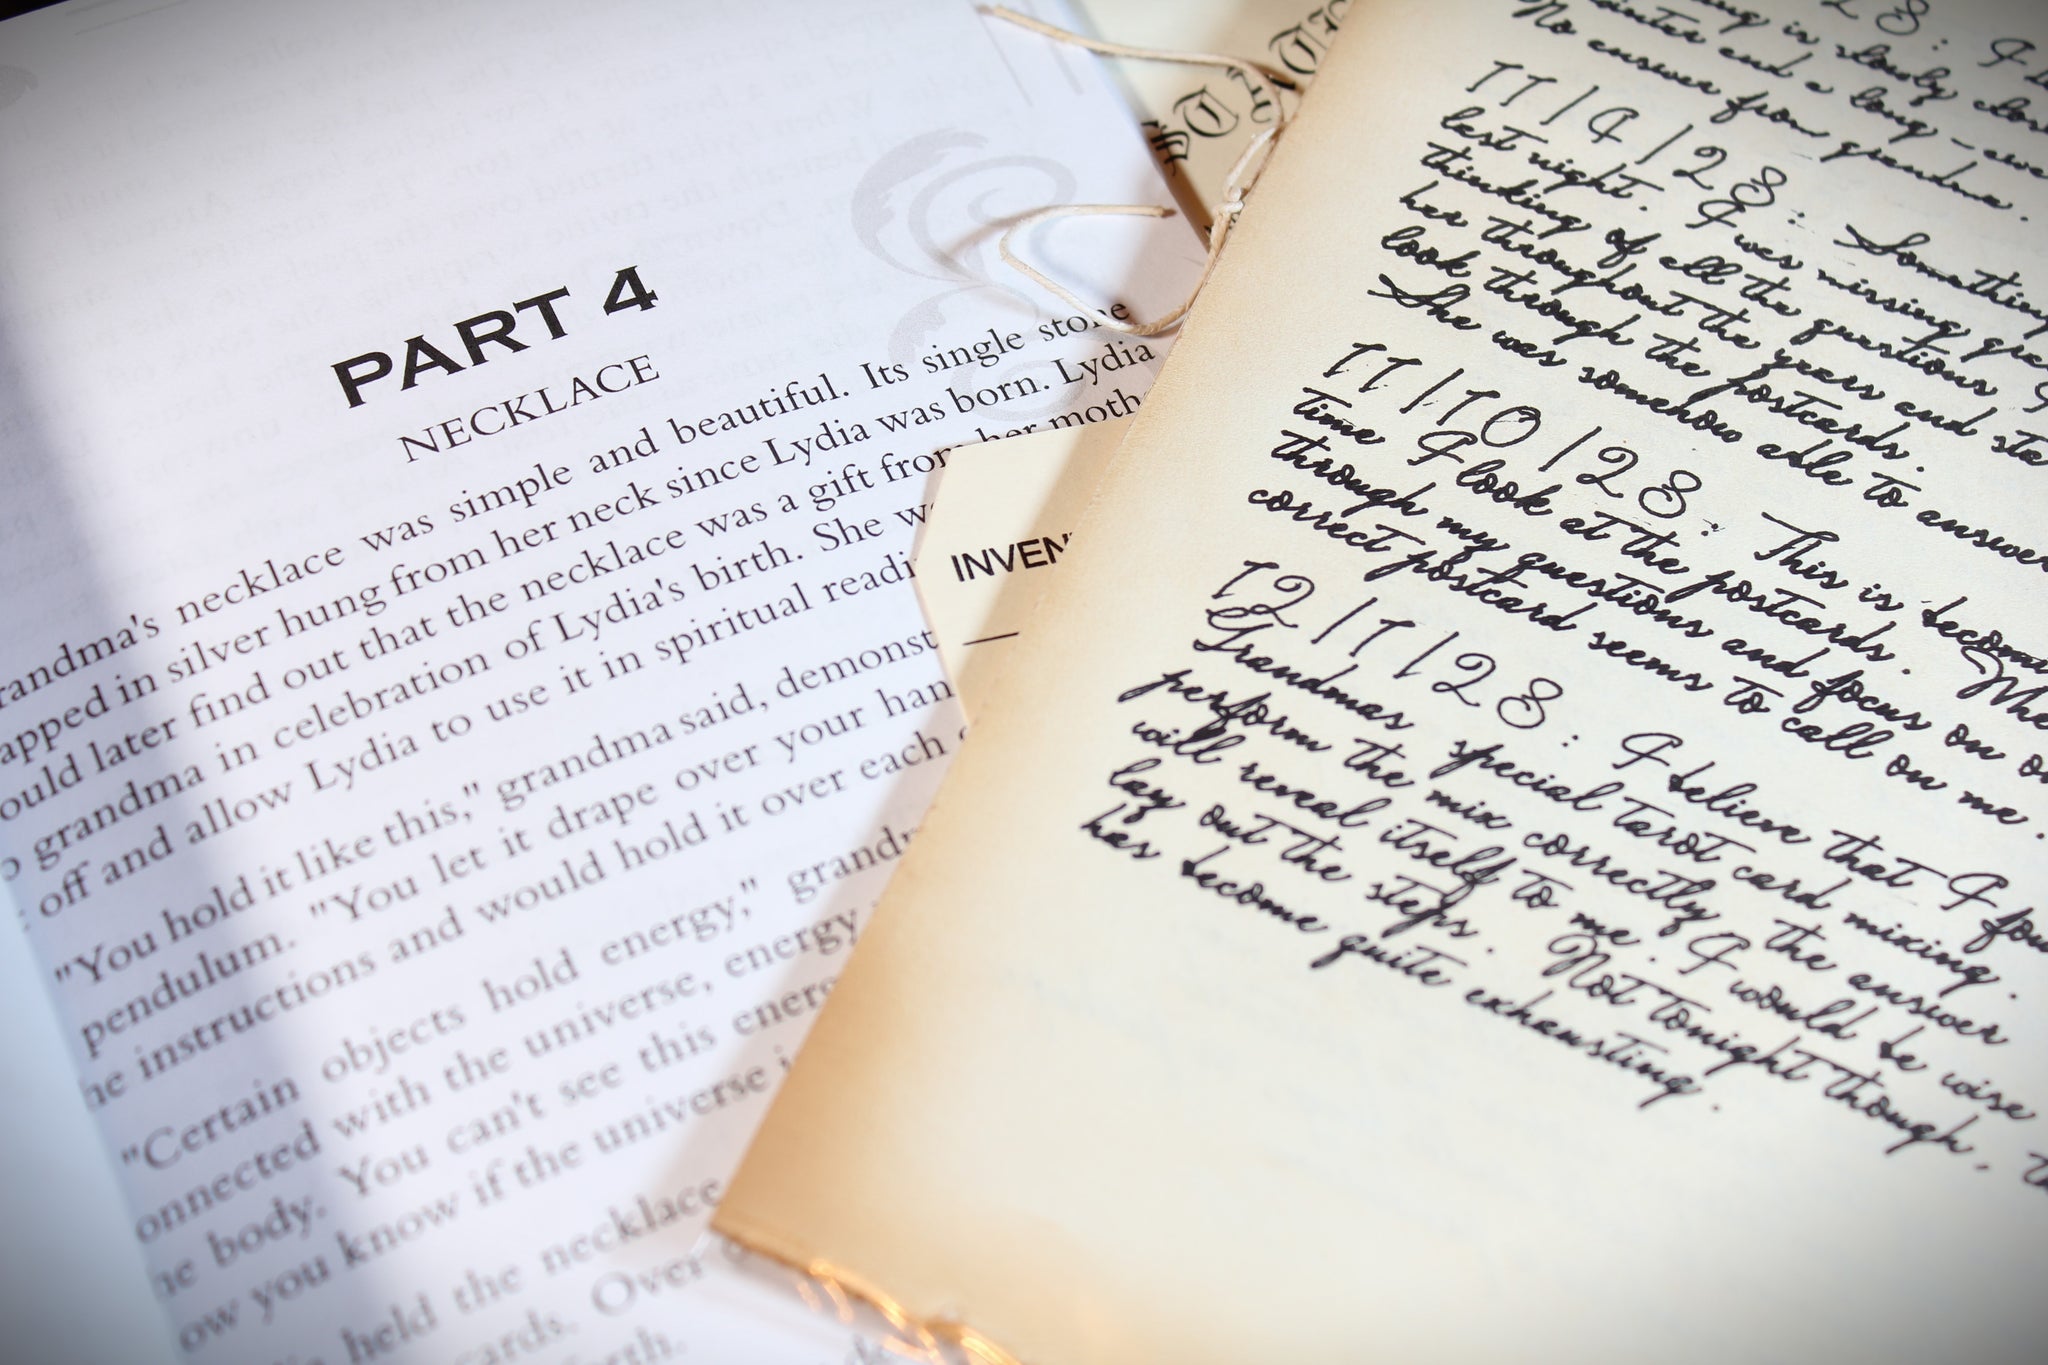 PART 4
NECKLACE
necklace was simple and beautiful. Its single stone
in silver hung from her neck since Lydia was born. Lydia
later find out that the necklace was a gift from her
grandma in celebration of Lydia's birth. She
off and allow Lydia to use it in spiritual
"You hold it like this," grandma said,
pendulum. "You let it drape over your
instructions and would hold it over each
"Certain objects hold energy,"
with the universe, energy
body. You can't see this
you know if the universe
held the necklace
cards. Over
is slowly
and a long-
No answer from grandma.
11/4/23: Something
last night. I was missing
thinking of all the questions I
her throughout the years and
look through the postcards.
She was somehow able to answer
11/10/23: This is
time I look at the postcards.
through my questions and focus on
correct postcard seems to call on me.
12/1/23: I believe that I
Grandmas special tarot card mixing.
perform the mix correctly the answer
will reveal itself to me. I would be wise
lay out the steps. Not tonight though,
has become quite exhausting.